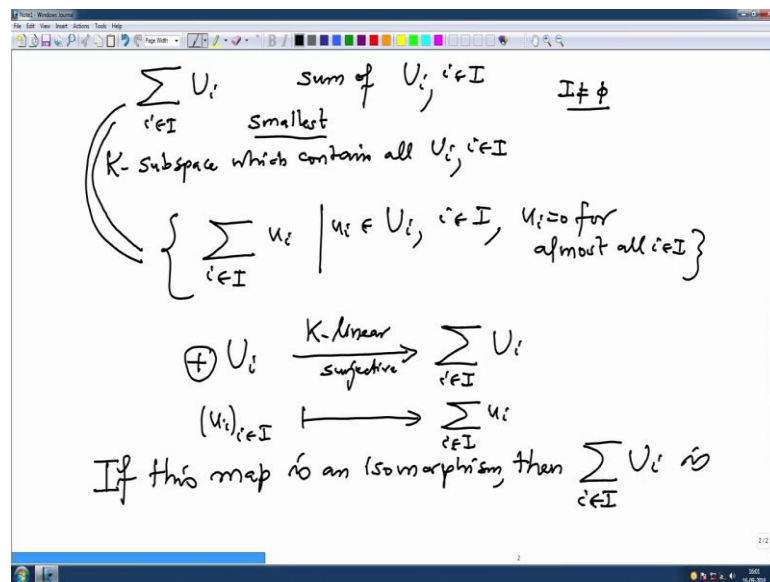 Note1 - Windows Journal
File Edit View Insert Actions Tools Help
Page Width
∑ U_i sum of U_i, i∈I I ≠ φ
i∈I smallest
K-subspace which contain all U_i, i∈I
{ ∑ u_i | u_i ∈ U_i, i∈I, u_i=0 for
i∈I almost all i∈I }
⊕ U_i K-linear ∑ U_i
surjective i∈I
(u_i)_{i∈I} ⟼ ∑ u_i
i∈I
If this map is an isomorphism, then ∑ U_i is
i∈I
2/2
2
16:01